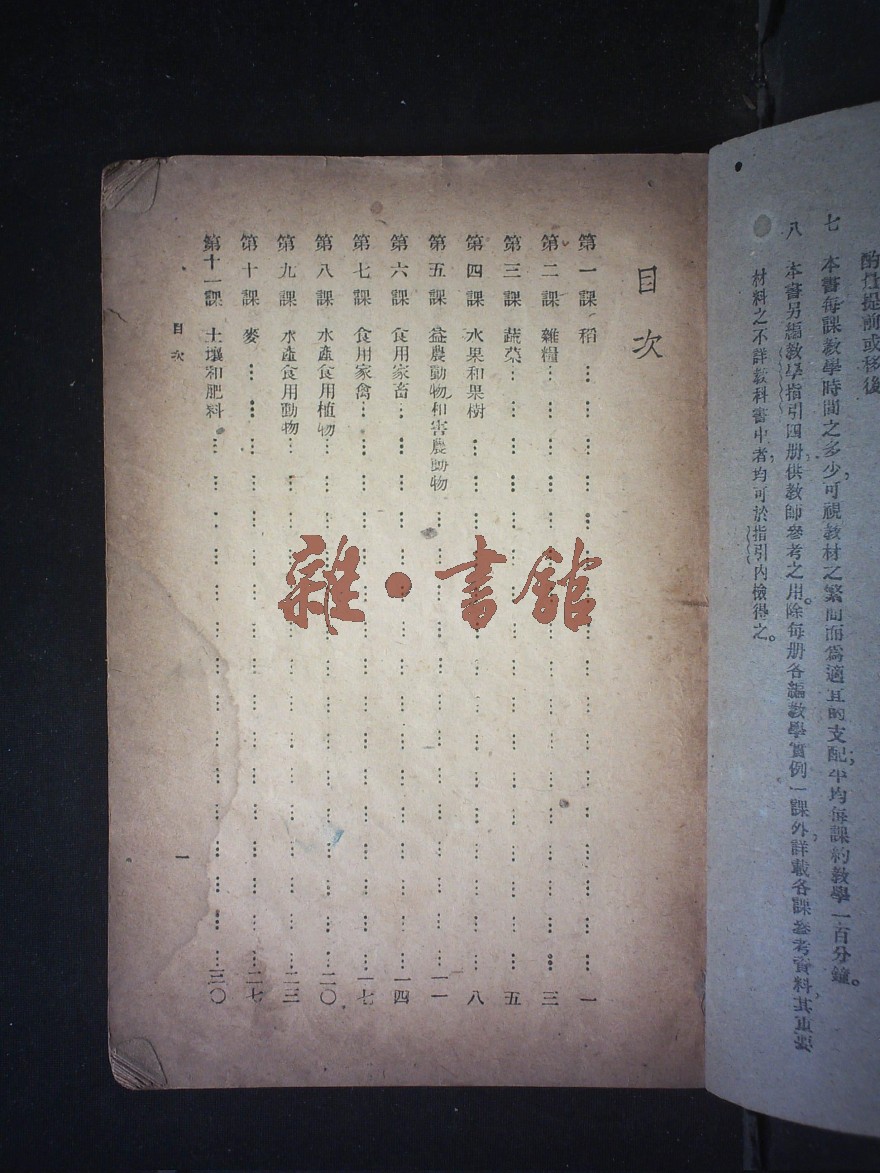 酌量提前或移後
七 本書每課教學時間之多少,可視教材之繁簡而爲適宜的支配;平均每課約教學一百分鐘。
八 本書另編教學指引四册,供教師參考之用。除每册各編教學實例一課外,詳載各課參考資料,其重要
材料之不詳教科書中者,均可於指引內檢得之。
目次
第一課 稻……一
第二課 雜糧……三
第三課 蔬菜……五
第四課 水果和果樹……八
第五課 益農動物和害農動物……一一
第六課 食用家畜……一四
第七課 食用家禽……一七
第八課 水產食用植物……二〇
第九課 水產食用動物……二三
第十課 麥……二七
第十一課 土壤和肥料……三〇
目次 一
雜·書館